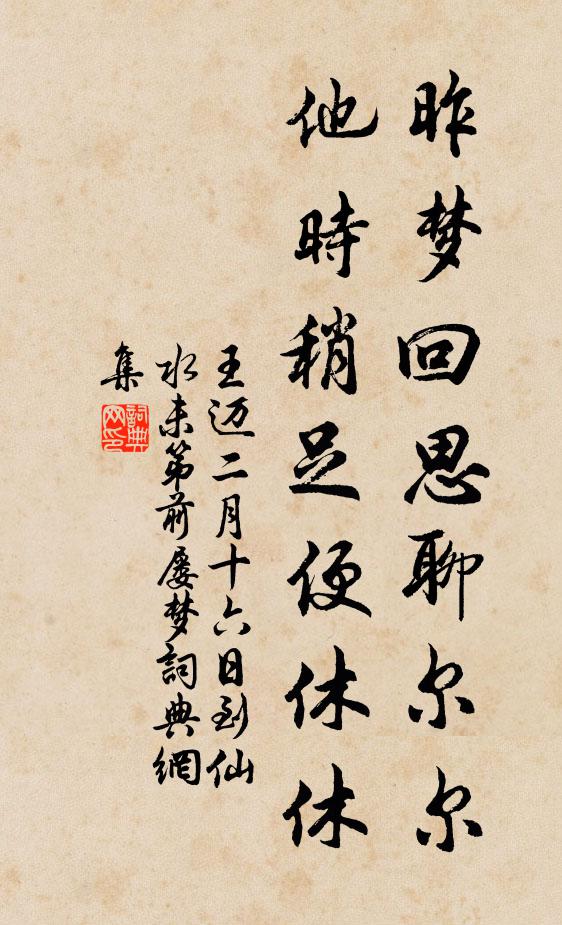 昨梦回思聊尔尔
他時稍足便休休
王迈二月十六日到仙
水未第前屡梦詞典網
集
詞典网印